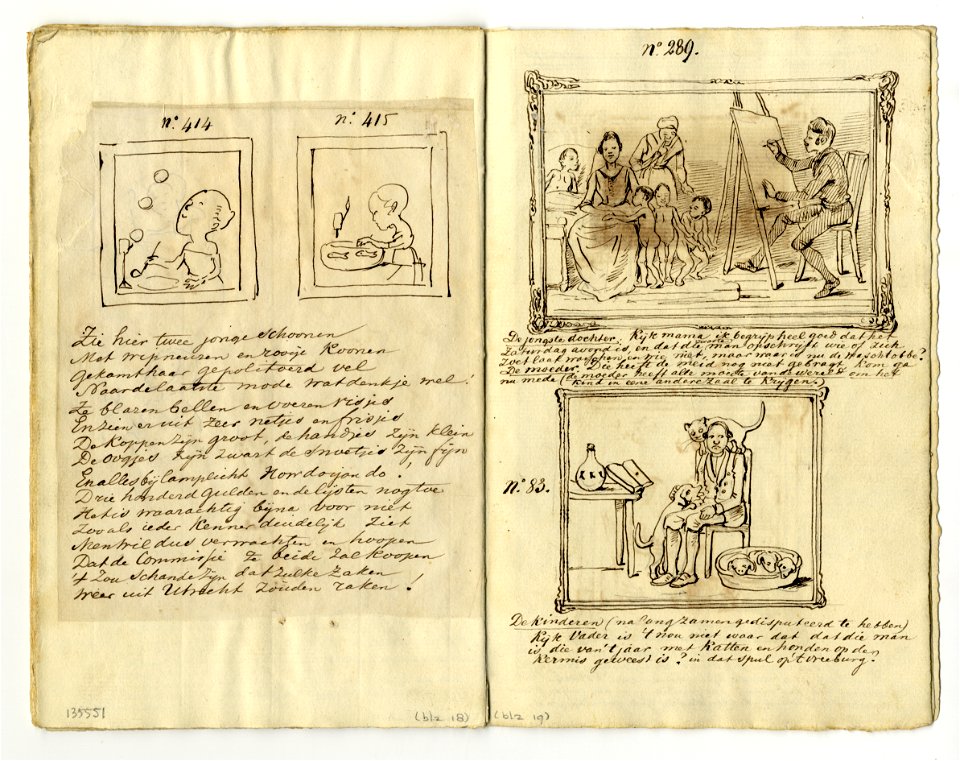 nº 414
nº 415
Zie hier twee jonge Schoonen
Met wipneusen en rooije Koonen
Gekamthaar gepolitoerd vel
Naar de laatste mode wat denkje wel!
Ze blazen bellen en voeren visjes
En zien er uit zeer netjes en frisjes
De Koppen zijn groot, de handjes zijn klein
De oogjes zijn zwart de snoetjes zijn fijn
En alles bij lamplicht Howdoyoudo!
Drie honderd Gulden en de lijsten nog toe
Het is waarachtig bijna voor niet
Zooals ieder Kenner deudelijk ziet
Men wil dus verwachten en hoopen
Dat de Commissie ze beide zal koopen
't Zou Schande zijn dat zulke zaken
Weer uit Utrecht zouden raken!
135551
(blz 18)
nº 289.
De jongste dochter, Kijk mama ik begrijp heel goed dat het
Zaturdag avond is en dat die zwarte man opschrijft wie of zich
zoet laat wasschen, en wie niet, maar waar is nu de waschtobbe?
De moeder. Die heeft de meid nog niet gebragt. Kom ga
nu mede (de moeder heeft alle moeite van de wereld om het
kind in eene andere zaal te krijgen)
Nº 83.
De kinderen (na lang zamen gedisputeerd te hebben)
Kijk Vader is 't nou niet waar dat dat die man
is die van 't jaar met Katten en honden op den
Kermis geweest is? in dat spul op 't vreeburg.
(blz 19)